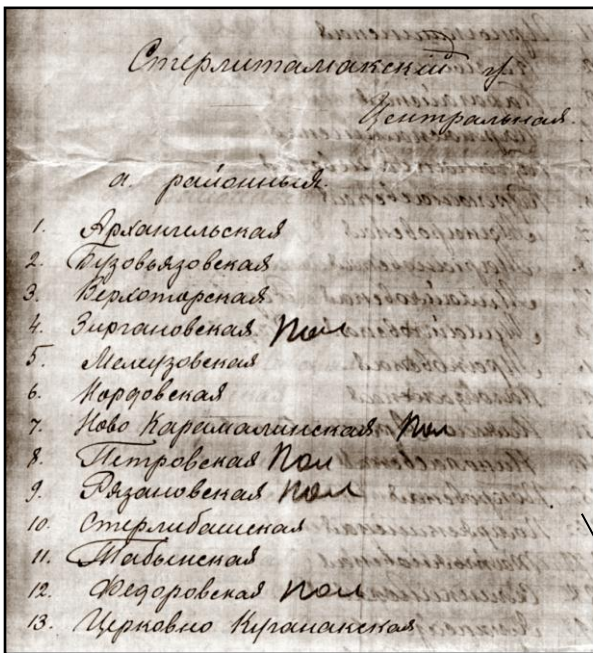 Стерлитамакскій у.
Центральная.
а. районныя.
1. Архангельская
2. Бузовьязовская
3. Верхоторская
4. Зиргановская Пол
5. Мелеузовская
6. Нордовская
7. Ново Карамалинская Пол
8. Петровская Пол
9. Рязановская Пол
10. Стерлибашская
11. Табынская
12. Федоровская Пол
13. Церковно Куганакская